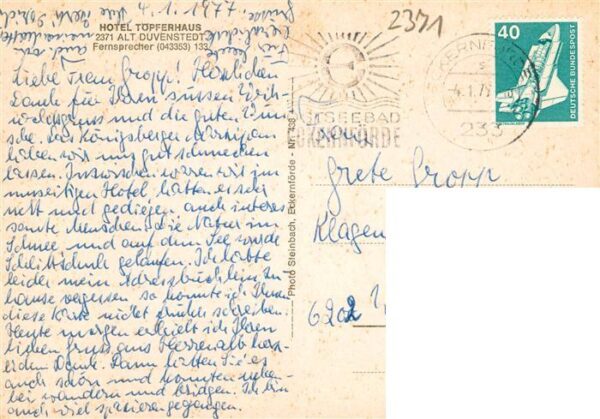 4.1.1977
HOTEL TÖPFERHAUS
2371 ALT DUVENSTEDT
Fernsprecher (043353) 133
Liebe Frau Gropp! Herzlichen
Dank für Ihren süssen Weih-
nachtsgruss und die guten Wün-
sche. Das Königsberger Marzipan
haben wir uns gut schmecken
lassen. Inzwischen waren wir im
umseitigen Hotel, hatten es sehr
nett und gediegen, auch interes
sante Menschen, die Natur im
Schnee und auf dem See wurde
Schlittschuh gelaufen. Ich hatte
leider mein Adressbüchlein zu
hause vergessen so konnte ich Ihnen
diese Karte nicht schreiben.
Heute morgen erhielt ich Ihren
lieben Gruss aus Herrenalb herz-
lichen Dank. Dann hatten Sie es
auch schön und konnten neben-
bei wandern und bridgen. Ich bin
auch viel spazierengegangen.
Photo Steinbach, Eckernförde - Nr. 433
2371
OSTSEEBAD
ECKERNFÖRDE
ECKERNFÖRDE
233
40
DEUTSCHE BUNDESPOST
Grete Gropp
Klagen
6202